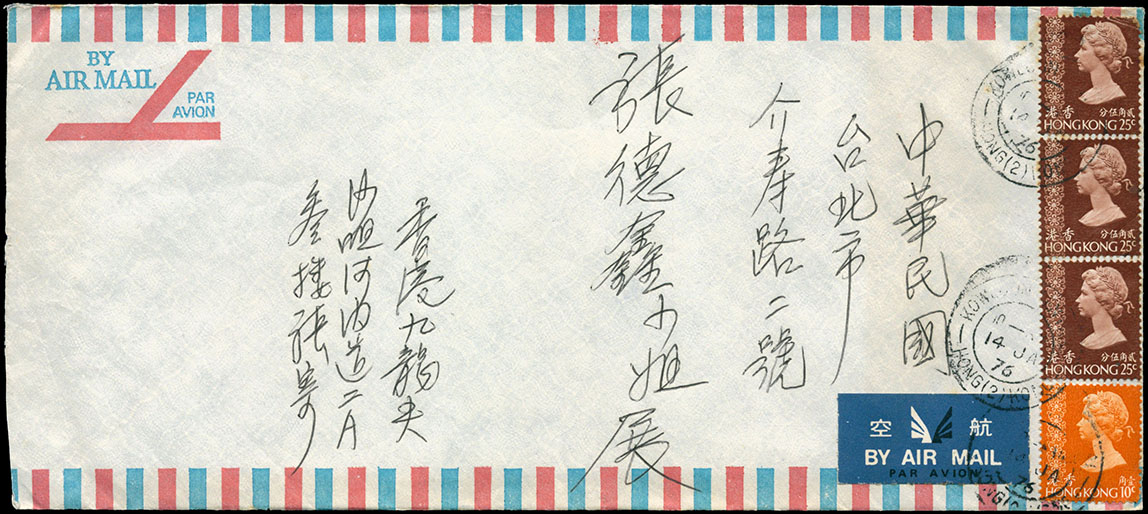 BY
AIR MAIL
PAR
AVION
中華民國
台北市
介寿路二號
張德鑫小姐展
香港九龍尖
沙咀河内道二A
叁楼張寄
航空
BY AIR MAIL
PAR AVION
香港 貳角伍分
HONG KONG 25c
香港 貳角伍分
HONG KONG 25c
香港 貳角伍分
HONG KONG 25c
香港 壹角
HONG KONG 10c
HONG(2)
76
14 JA
76
HONG(2)
JA
76